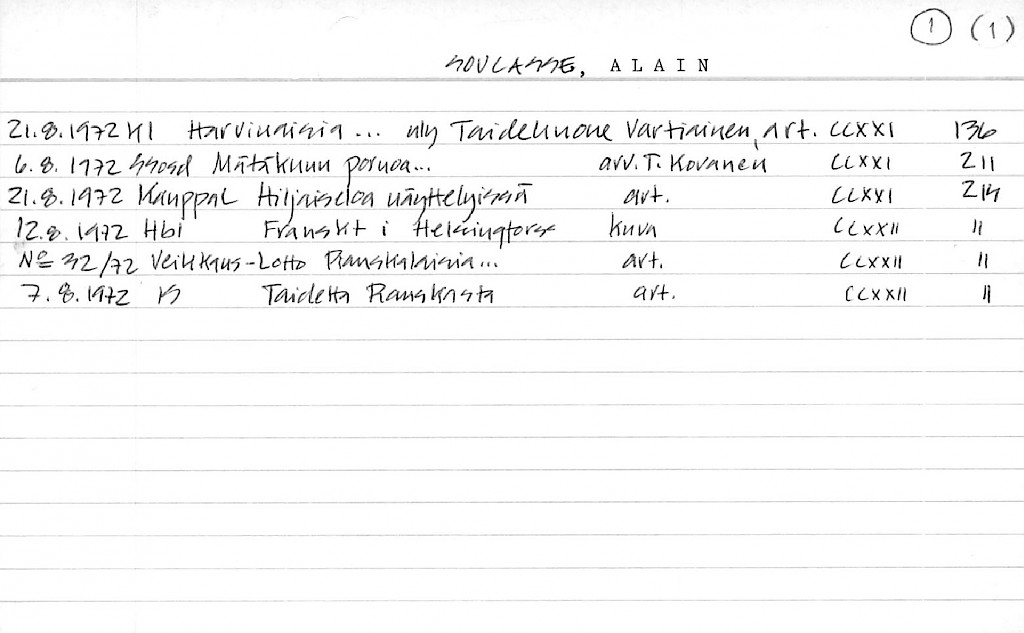 1 (1)
SOULASSE, ALAIN
21.8.1972 Kl Harvinaisia... nly Taidehuone Vartiainen, art. CCXXI 136
6.8.1972 SSosd Mätäkuun poruoa... arv. T. Kovanen CCXXI 211
21.8.1972 Kauppal Hiljaiseloa näyttelyissä art. CCXXI 214
12.8.1972 Hbl Franskt i Helsingfors kuva CCXXII 11
No 32/72 Veikkaus-Lotto Ranskalaisia... art. CCXXII 11
7.8.1972 Taidetta Ranskasta art. CCXXII 11